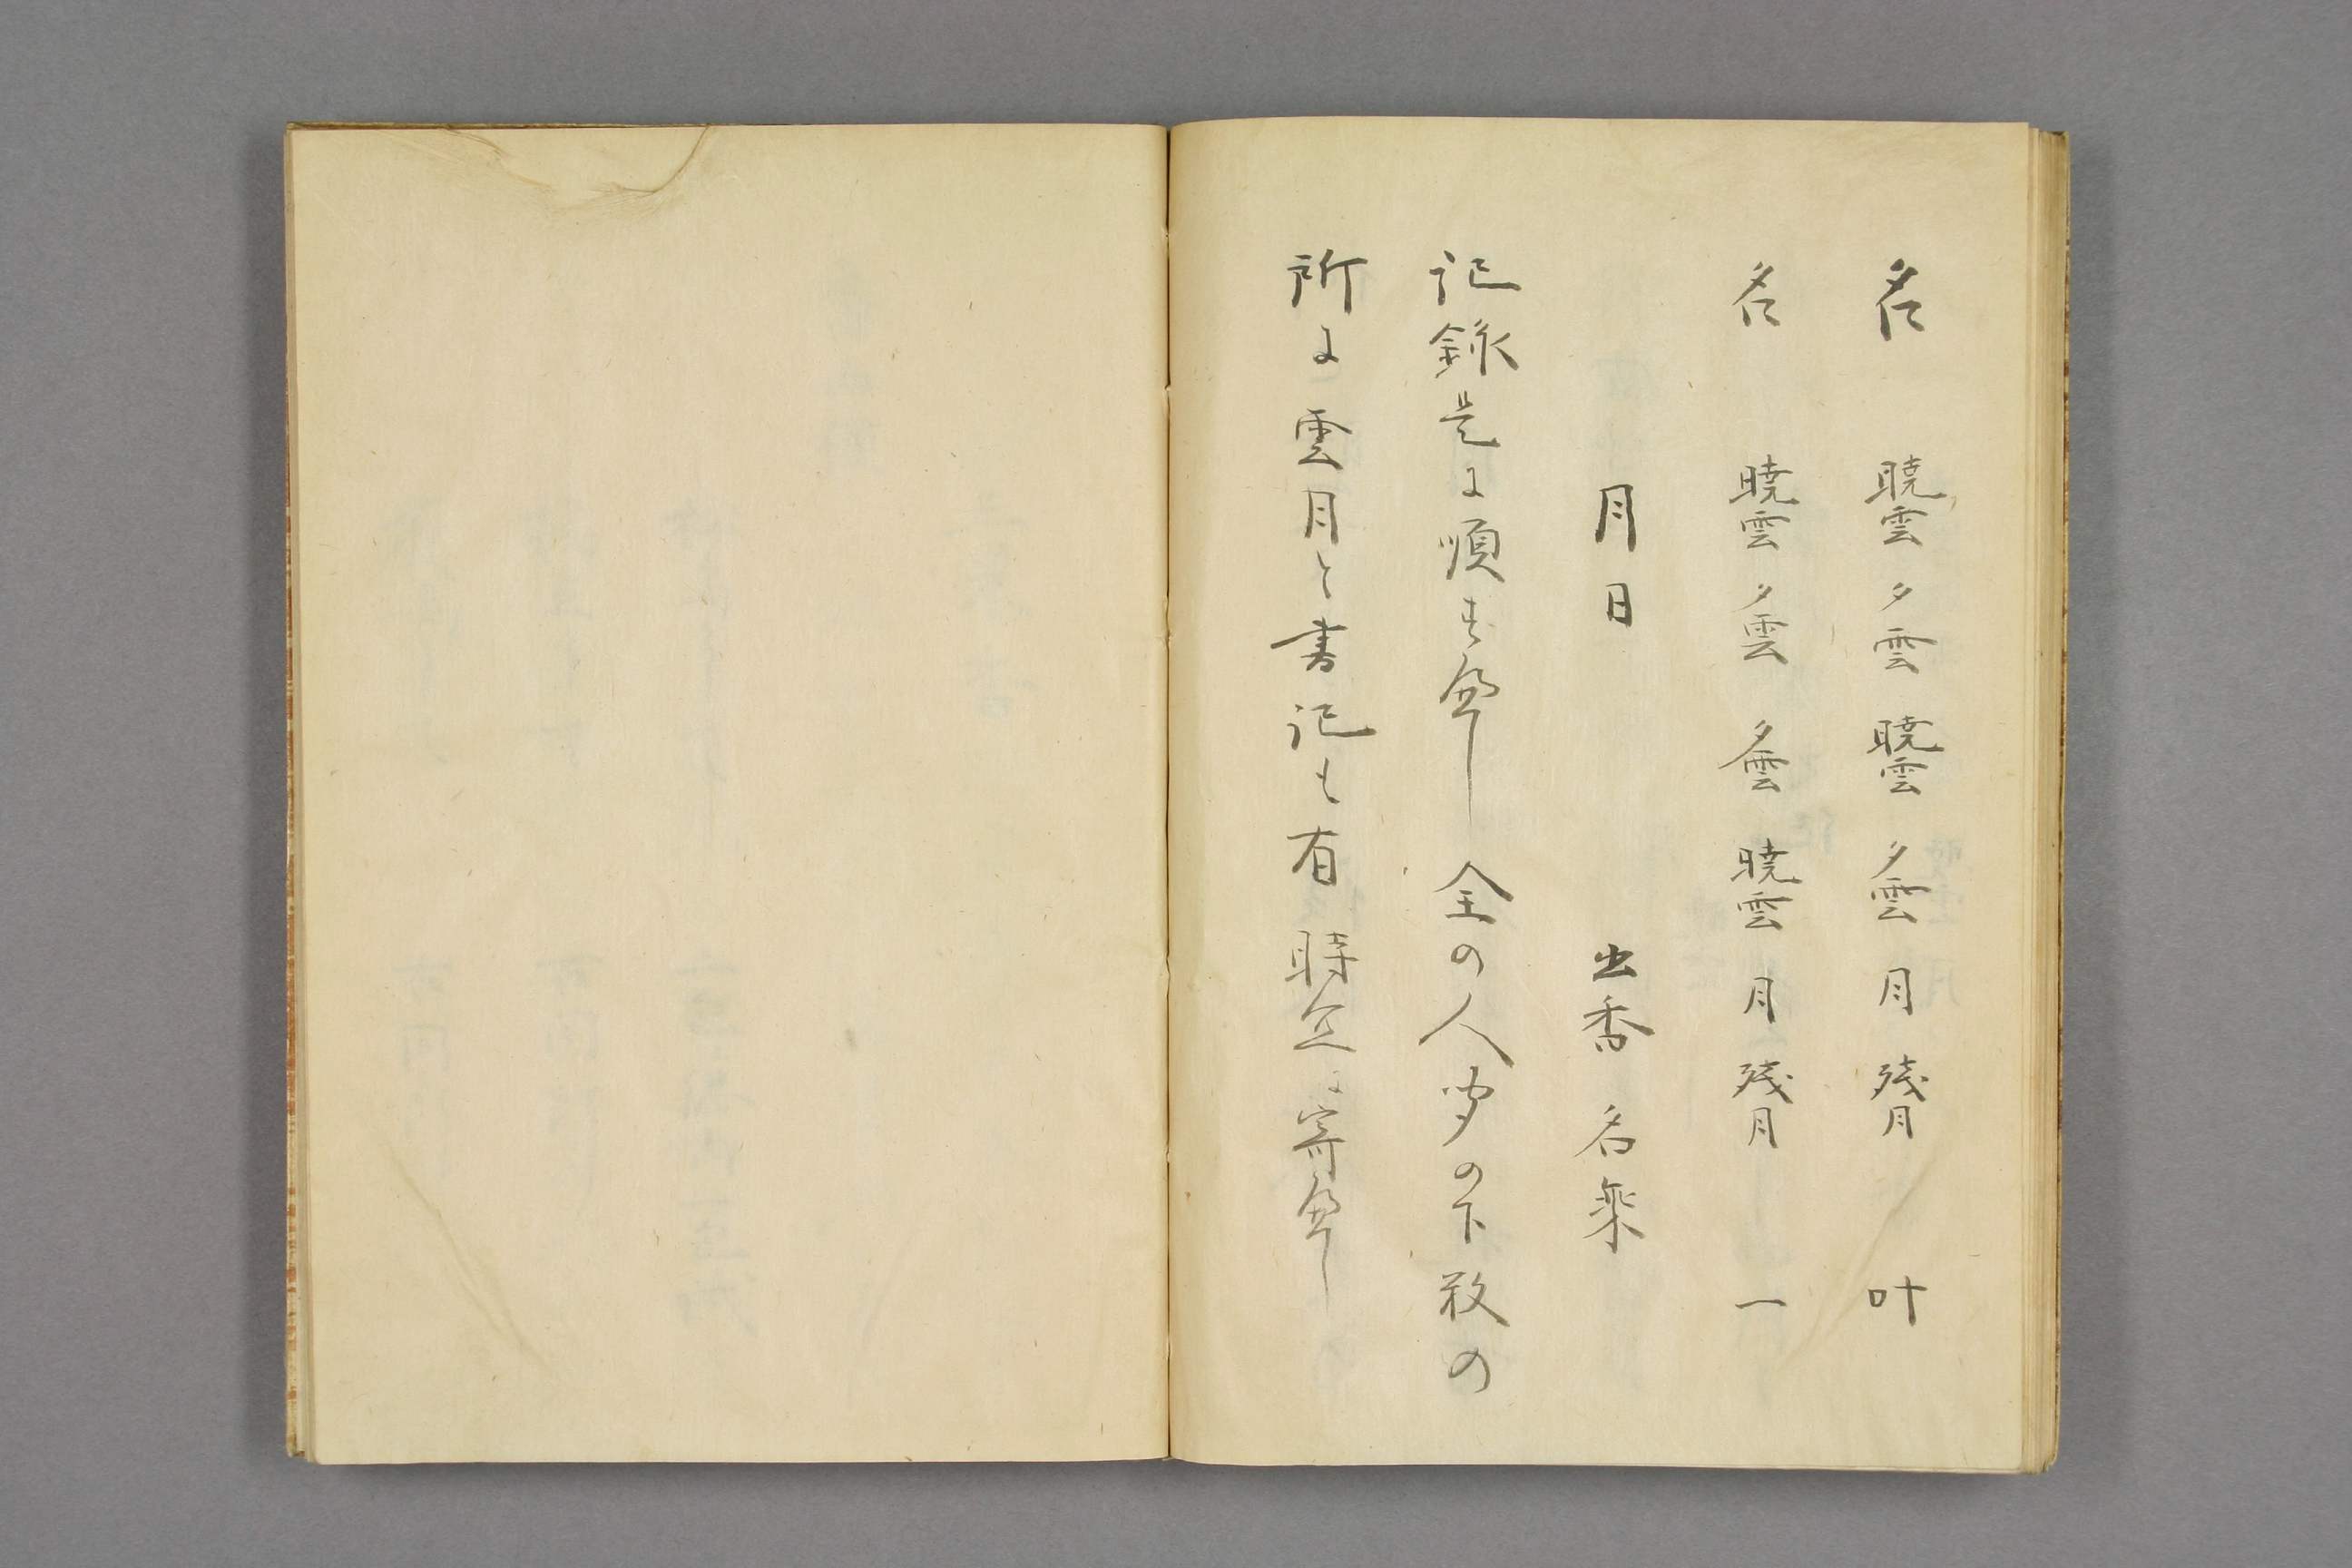 名 暁雲 夕雲 暁雲 夕雲 月 残月 叶
名 暁雲 夕雲 夕雲 暁雲 月 残月 一
月日 出香 名乗
記録是に順す へし 全の人聞の下数の
所に雲月と書記も有時宜に寄へし